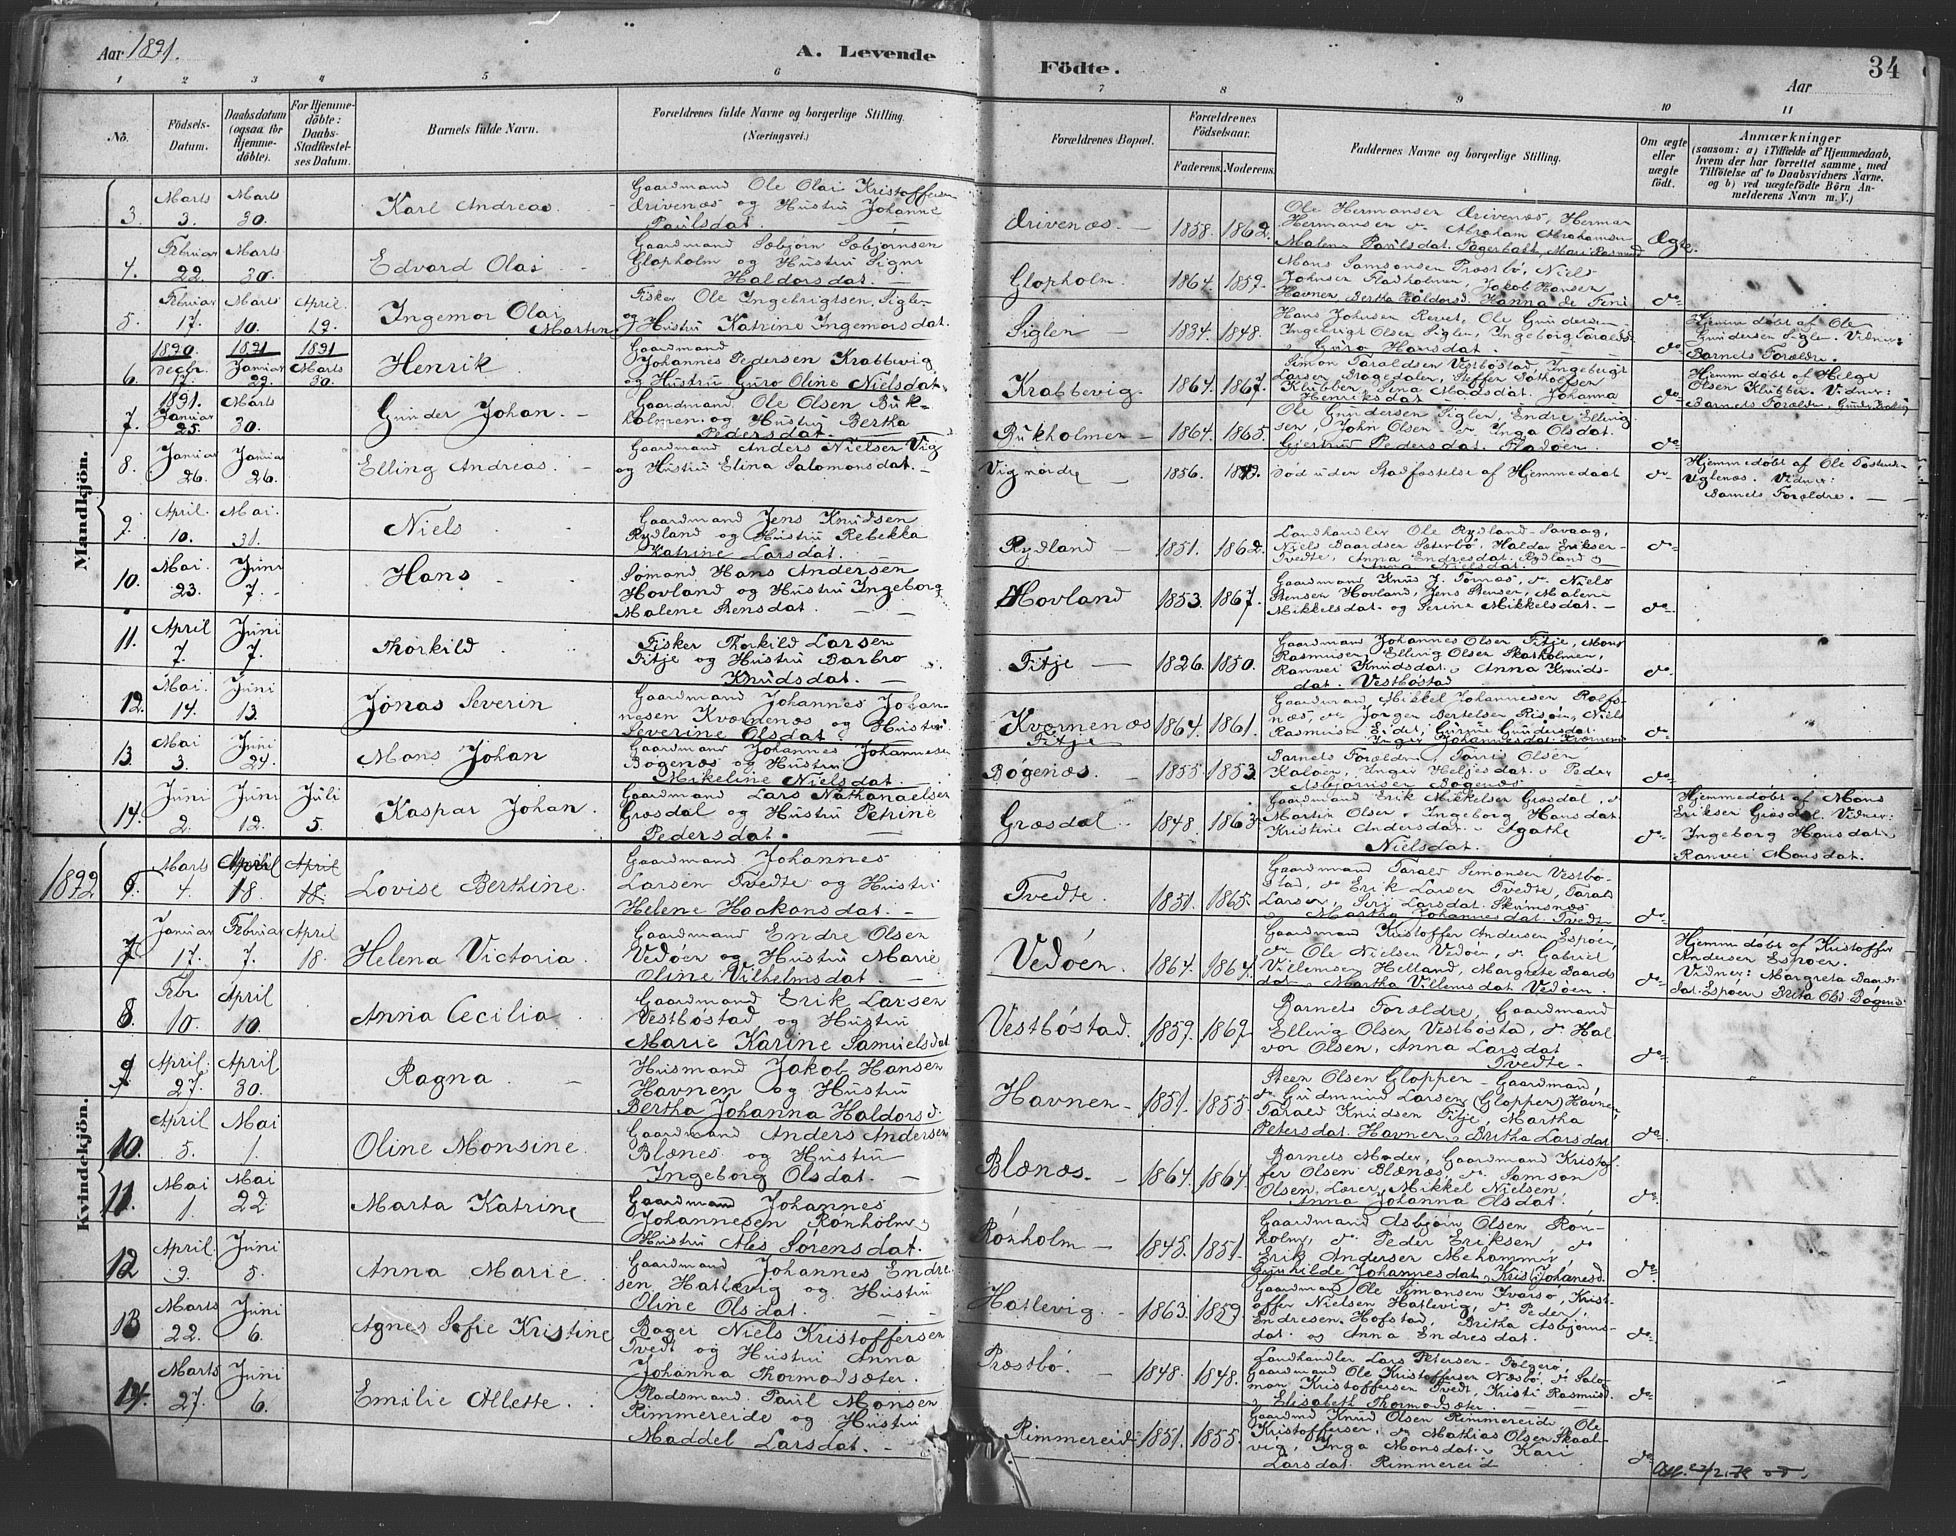 Aar 1891.
A. Levende
Födte.
Aar
34
1 2 3 4 5 6 7 8 9 10 11
No.
Födsels-Datum.
Daabsdatum (ogsaa for Hjemme-döbte).
For Hjemme-döbte: Daabs-Stadfæstel-ses Datum.
Barnets fulde Navn.
Forældrenes fulde Navne og borgerlige Stilling. (Næringsvei.)
Forældrenes Bopæl.
Forældrenes Födselsaar.
Faderens. Moderens.
Faddernes Navne og borgerlige Stilling.
Om ægte eller uægte født.
Anmærkninger
(saasom: a) i Tilfælde af Hjemmedaab,
hvem der har forrettet samme, med
Tilföielse af to Daabsvidners Navne.
og b) ved uægtefödte Börn An-
melderens Navn m. V.)
Mandkjön.
3. Marts 3. Marts 30. Karl Andreas. Gaardmand Ole Olai Kristoffersen
Drivenæs og Hustru Johanne
Paulsdat. Drivenæs. 1858. 1862. Ole Hermansen Drivenæs, Herman
Hermansen do Abraham Abrahamsen
Malene Paulsdat. Fagerbakk, Mari Rasmusd Ægte.
4. Februar 22. Marts 30. Edvard Olai Gaardmand Sæbjørn Sæbjørnsen
Glopholm og Hustru Signe
Haldorsdat. Glopholm. 1864. 1859. Mons Samsonsen Præstbö, Niels
Johnsen Fladholmen, Jakob Hansen
Havnen Bertha Haldorsd. Hanna de Fine do
5. Februar 17. Marts 10. April 19. Ingemor Olai Martin Fisker Ole Ingebrigtsen Siglen
og Hustru Katrine Ingemorsdat. Siglen 1834. 1848. Hans Johnsen Revet, Ole Gunders-
Ingebrigt Olsen Siglen, Ingeborg Taralds
Guro Hansdat. do Hjemmedøbt af Ole
Gundersen Siglen. Vidner:
Barnets Forældre.
6. 1890 Decbr. 17. 1891 Januar 29. 1891 Marts 30. Henrik. Gaardmand
Johannes Pedersen Krabbevig
og Hustru Guro Oline Nielsdat. Krabbevig. 1864. 1867. Simon Taraldsen Vestbøstad, Ingebrigt
Larsen
Klubben, Sina Madsdat. Johanna
Henriksdat do Hjemmedøbt af Helge
Olsen Klubben. Vidner:
Barnets Forældre,
7. 1891. Januar 25. Marts 30. Gunder Johan. Gaardmand Ole Olsen Buk-
holmen og Hustru Bertha
Pedersdat. Bukholmen 1864. 1865. Ole Gundersen Siglen, Endre Elling-
sen, John Olsen do Inga Olsdat
Gjertrud Pedersdat. Fladöen. do
8. Januar 26. Januar 26. Elling Andreas. Gaardmand Anders Nielsen Vig
og Hustru Elina Salomonsdat. Vig nordre 1856. Död uden Stadfæstelse af Hjemmedaab do Hjemmedøbt af Ole
Uglenæs. Vidner:
Barnets Forældre.
9. April 10. Mai 31. Niels Gaardmand Jens Knudsen
Rydland og Hustru Rebekka
Katrine Larsdat. Rydland 1851. 1862. Landhandler Ole Rydland Savaag,
Niels Baardsen Sæterbø, Haldor Eriksen
Tvedte, Anna Endresdat. Rydland
Anna Nielsdat. do
10. Mai 23. Juni 7. Hans Sømand Hans Andersen
Hovland og Hustru Ingeborg
Malene Stensdat. Hovland 1853. 1867. Gaardmand Knud J. Tornæs, do Niels
Stensen Hovland, Jens Stensen, Malene
Mikkelsdat. og Serine Mikkelsdat. do
11. April 7. Juni 7. Thorkild Fisker Thorkild Larsen
Fitje og Hustru Barbro
Knudsdat. Fitje 1826. 1850. Gaardmand Johannes Olsen Fitje, Mons
Rasmusen, Elling Olsen Skatholmen,
Ranvei Knudsdat. Anna Knuds-
dat. Vestböstad do
12. Mai. 14. Juni 13. Jonas Severin Gaardmand Johannes Johan-
nesen Kværnenæs og Hustru
Severine Olsdat. Kværnenæs Fitje 1864. 1861. Gaardmand Mikkel Johannesen Rolfs-
næs, do Jorgen Bertelsen Risøen, Niels
Rasmusen Eidet, Gurine Gundersdat.
Inger Johannesdat. Kværnenæs do
13. Mai 3. Juni 24. Mons Johan Gaardmand Johannes Johannesen
Bøgenæs og Hustru
Mikeline Nielsdat. Bøgenæs. 1855. 1853. Barnets Forældre, Tarris Olsen
Kalöen, Inger Heljesdat. Peder
Asbjørnsen Bøgenæs do
14. Juni 2. Juni 12. Juli 5. Kaspar Johan. Gaardmand Lars Nathanaelsen
Græsdal og Hustru Petrine
Pedersdat. Græsdal. 1848. 1863. Gaardmand Erik Mikkelsen Græsdal, do
Martin Olsen, Ingeborg Hansdat.
Kristine Andersdat. Agathe
Nielsdat. do Hjemmedøbt af Mons
Eriksen Græsdal. Vidner:
Ingeborg Hansdat.
Ranvei Monsdat.
1892
Kvindekjön.
6. Marts 4. April 18 April 18. Lovise Berthine. Gaardmand Johannes
Larsen Tvedte og Hustru
Helene Haakonsdat. Tvedte. 1851. 1865. Gaardmand Tarald Simonsen Vestbø-
stad, do Erik Larsen Tvedte, Tarald
Larsen, Siri Larsdat. Skumsnæs
Martha Johannesdat. Tvedte do
7. Januar 17. Februar 7. April 18. Helena Victoria. Gaardmand Endre Olsen
Vedøen og Hustru Marie
Oline Vilhelmsdat. Vedöen. 1864. 1864. Gaardmand Kristoffer Andersen Espöen,
do Ole Nielsen Vedöen, do Gabriel
Villemsen Helland, Margrete Baards
dat. Martha Villemsdat Vedöen. do Hjemmedøbt af Kristoffer
Andersen Espöen.
Vidner: Margreta Baards
dat. Espöen Brita Olsd Bøgenæs
8. Febr. 10. April 10. Anna Cecilia. Gaardmand Erik Larsen
Vestböstad og Hustru
Marie Karine Samuelsdat Vestböstad. 1859. 1869. Barnets Forældre, Gaardmand
Elling Olsen Vestbösta, do Hal
vor Olsen, Anna Larsdat
Tvedte. do
9. April. 27. April 30. Ragna. Husmand Jakob Hansen
Havnen og Hustru
Bertha Johanna Haldorsd. Havnen 1851. 1855. Steen Olsen Gloppen Gaardmand,
do Gudmund Larsen (Gloppen) Havnen
Tarald Knudsen Fitje, Martha
Petersdat. Havnen, Britha Larsdat do
10. April 5. Mai 1. Oline Monsine. Gaardmand Anders Andersen
Blænes og Hustru
Ingeborg Olsdat. Blænæs. 1864. 1864. Barnets Moder, Gaardmand Kristof-
fer Olsen Blænæs do Samson
Olsen, Lærer Mikkel Nielsen,
Anna Johanna Olsdat. do
11. Mai 1. Mai 22. Marta Katrine Gaardmand Johannes
Johannesen Rønholm og
Hustru Ales Sörensdat. Rönholm 1845. 1851. Gaardmand Asbjørn Olsen Rön-
holm, do Peder Eriksen do
Erik Andersen Mehammer,
Gunhilde Johannesdat. Kris. Johannesd. do
12. April. 9. Juni 5. Anna Marie. Gaardmand Johannes Endre-
sen Hatlevig og Hustru
Oline Olsdat. Hatlevig. 1863. 1859. Gaardmand Ole Simonsen Ivarsø, Krist-
offer Nielsen Hatlevig, do Peder
Endresen Hofstad, Britha Asbjørns-
dat. og Anna Endresdat. do
13. Marts 22. Juni 6. Agnes Sofie Kristine Bager Niels Kristoffersen
Tvedt og Hustru Anna
Johanna Thormodsæter. Præstbö. 1848. 1848. Landhandler Lars Petersen Folgerö,
Gaardmand Ole Kristoffersen Næsbö, do Salo-
mon Kristoffersen Tvedt, Kristi Rasmusd.
Elisabeth Thormodsæter. do
14. Marts 27. Juni 6. Emilie Allette. Pladsmand Paul Monsen
Rimmereide og Hustru
Maddel Larsdat. Rimmereid 1851. 1855. Gaardmd Knud Olsen Rimmereide, Ole
Kristoffersen, do Mathias Olsen Skaale-
vig, Inga Monsdat. Kari
Larsdat. Rimmereid do